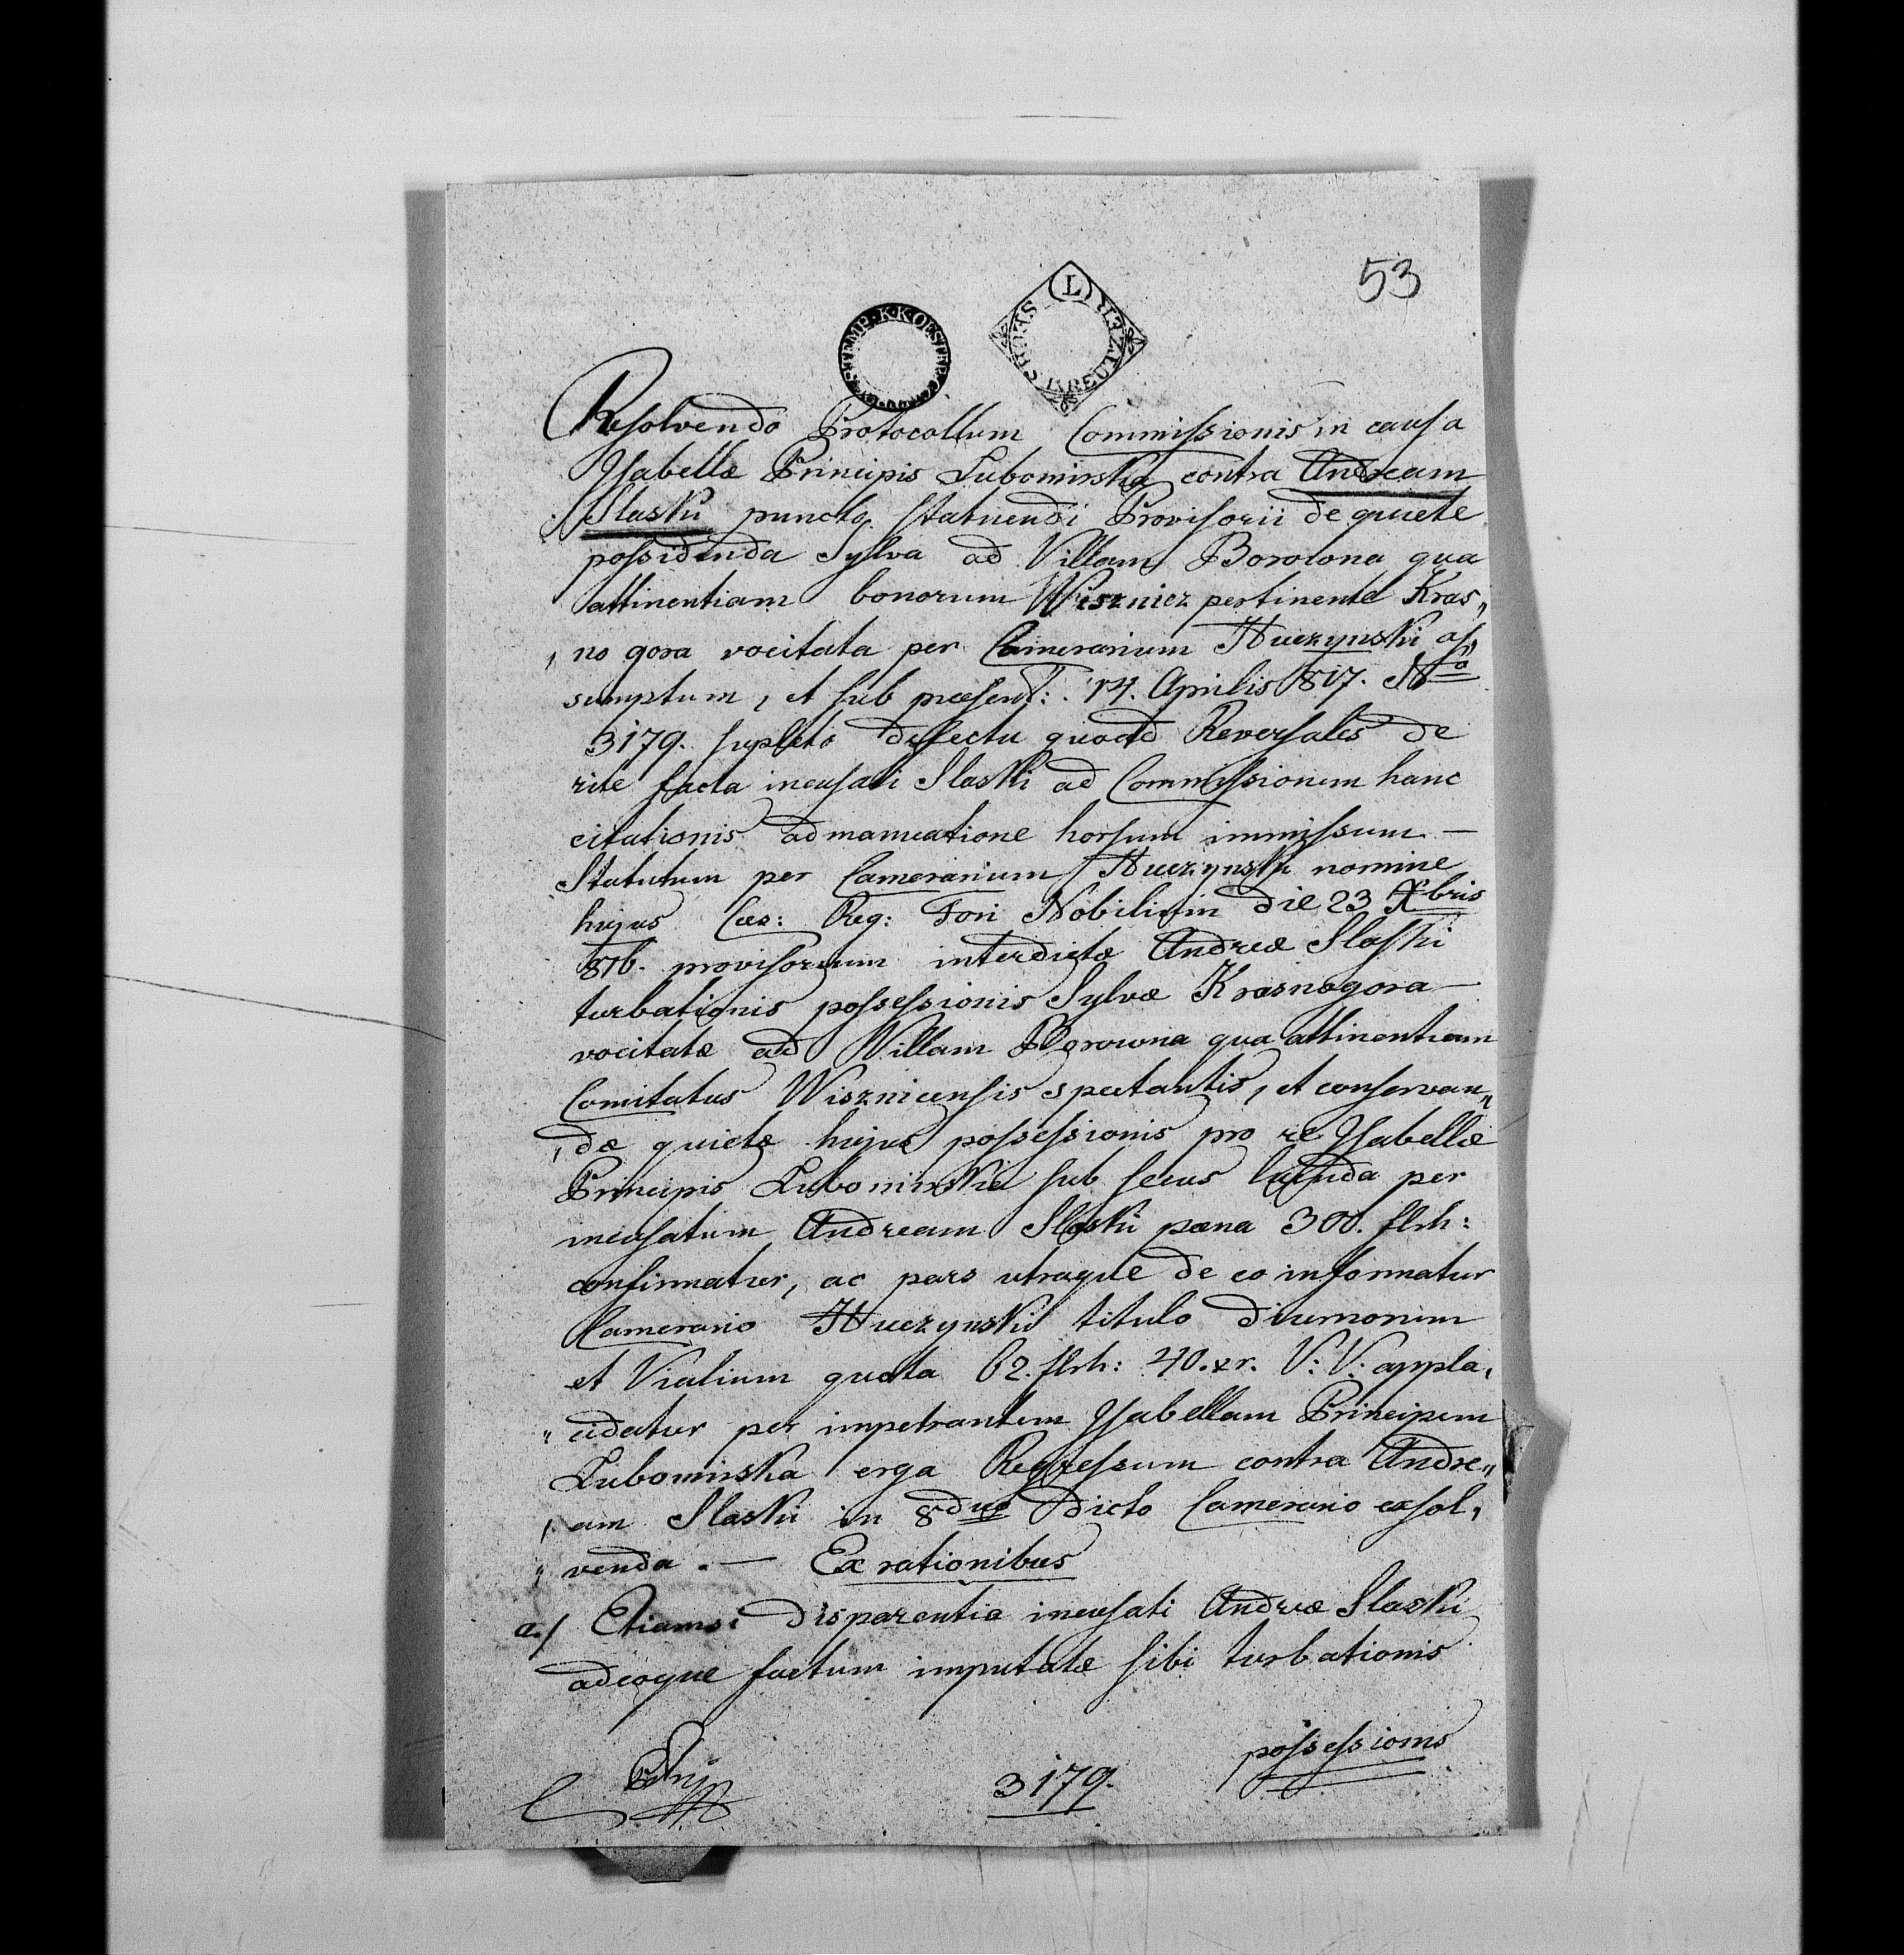 53
STEMP. K. K. OESTER.
SECHS KREUTZER (L)
Resolvendo Protocollum Commissionis in causa
Ysabellæ Principis Lubomirska contra Andream
Slaski puncto statuendi Provisorii de quiete
possidenda Sylva ad Villam Borowna qua
attinentiam bonorum Wisznicz pertinente Kras„
„no gora vocitata per Camerarium Huczynski as„
sumptum, et sub præsent: 14. Aprilis 817. Nro
3179. supleto defectu quoad Reversales de
rite facta incusati Slaski ad Commissionem hanc
citationis admanuatione horsum immissum. —
Statutum per Camerarium Huczynski nomine
hujus Cæs: Reg: Fori Nobilium die 23 Xbris
816. provisorium interdictæ Andreæ Slaski
turbationis possessionis Sylvæ Krasnogora —
vocitatæ ad Villam Borowna qua attinentiam
Comitatus Wisznicensis spectantis, et conservan„
„dæ quietæ hujus possessionis pro re Ysabellæ
Principis Lubomirska sub secus luenda per
incusatum Andream Slaski pæna 300. flrh:
confirmatur, ac pars utraque de eo informatur
Camerario Huczynski titulo diurnorum
et Vialium quota 62. flrh: 40. xr. V: V: appla„
„cidatur per impetrantem Ysabellam Principem
Lubomirska erga Regressum contra Andre„
„am Slaski in 8duo dicto Camerario exsol„
„venda. — Ex rationibus
a./ Etiamsi disparentia incusati Andreæ Slaski
adeoque factum imputatæ sibi turbationis
possessionis
3179.